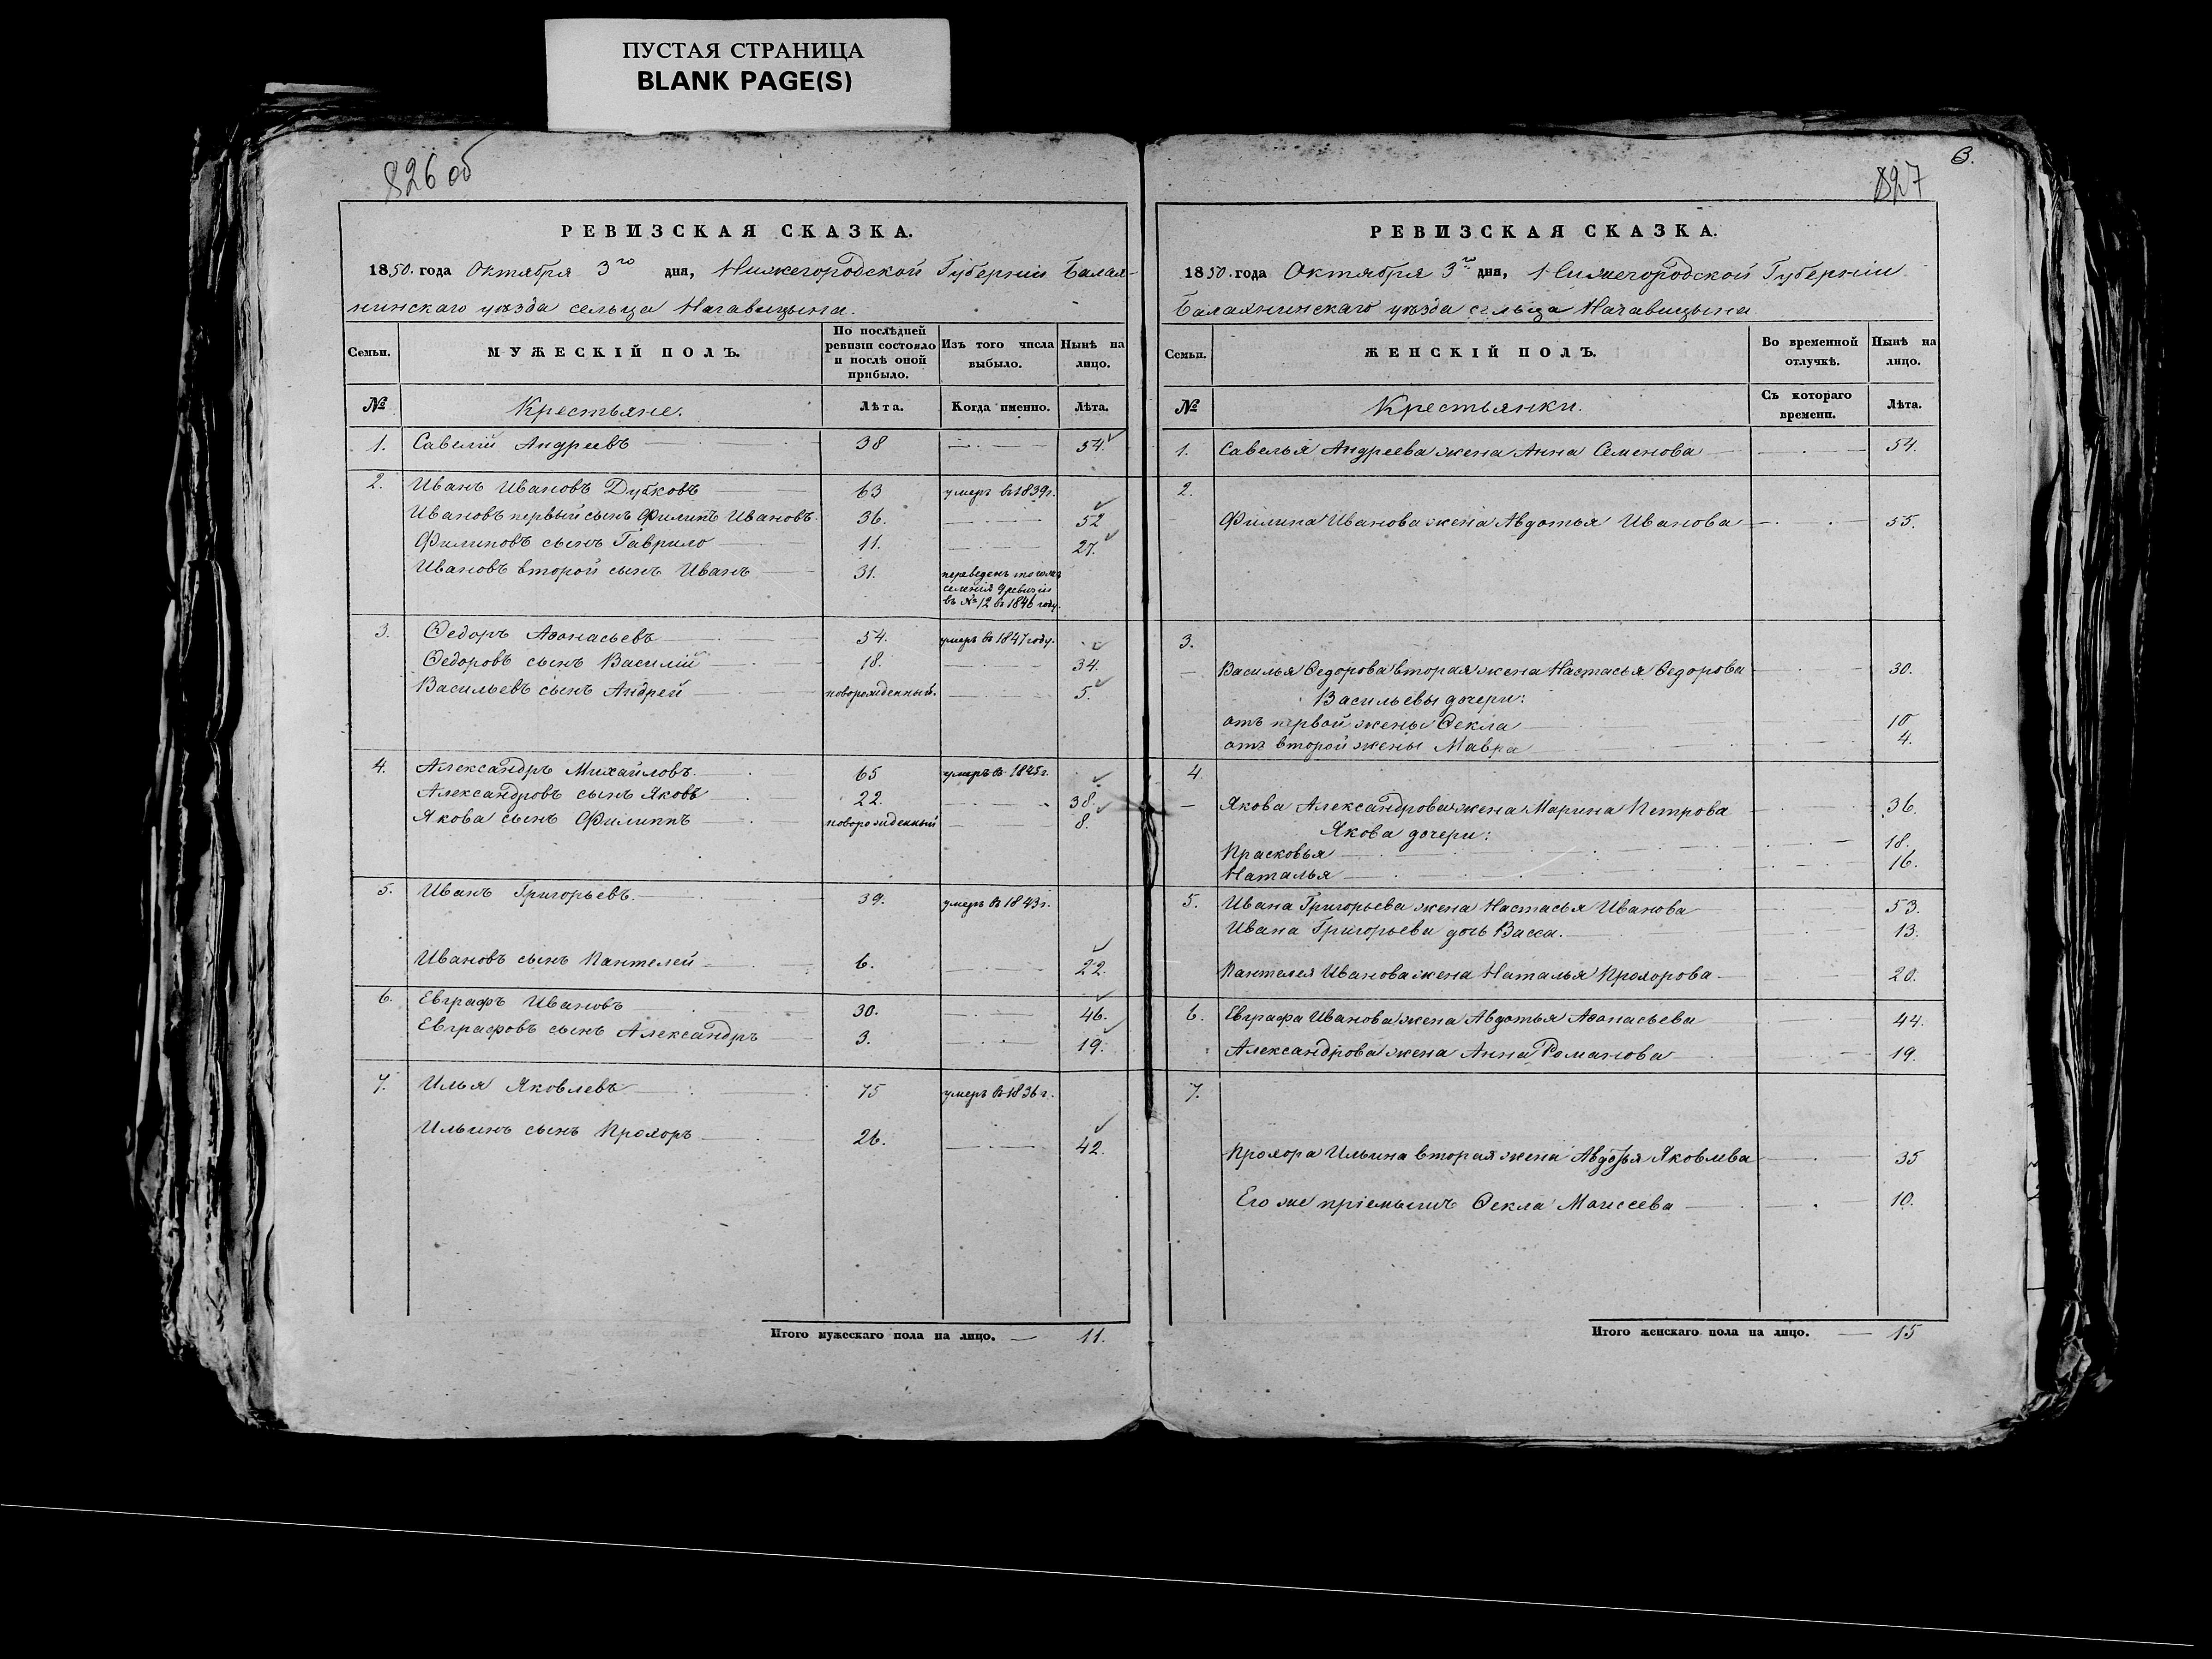 ПУСТАЯ СТРАНИЦА
BLANK PAGE(S)
826 об
РЕВИЗСКАЯ СКАЗКА.
1850. года Октября 3го дня, Нижегородской Губерніи Балах-
нинскаго уѣзда сельца Начавицына.
Семьи. МУЖЕСКІЙ ПОЛЪ. По послѣдней ревизіи состояло и послѣ оной прибыло. Изъ того числа выбыло. Нынѣ на лицо.
№ Крестьяне. Лѣта. Когда именно. Лѣта.
1. Савелій Андреевъ 38 54.
2. Иванъ Ивановъ Дубковъ 63 умеръ въ 1839г.
Ивановъ первый сынъ Филипъ Ивановъ 36. 52
Филиповъ сынъ Гаврило 11. 27.
Ивановъ второй сынъ Иванъ 31. переведенъ тогожъ
селенія 9 ревизіи
въ № 12 въ 1846 году.
3. Ѳедоръ Аѳонасьевъ 54. умеръ въ 1847 году.
Ѳедоровъ сынъ Василій 18. 34.
Васильевъ сынъ Андрей новорожденный. 5.
4. Александръ Михайловъ 65 умеръ въ 1845г.
Александровъ сынъ Яковъ 22. 38.
Якова сынъ Филиппъ новорожденный 8.
5. Иванъ Григорьевъ. 39. умеръ въ 1843г.
Ивановъ сынъ Пантелей 6. 22.
6. Евграфъ Ивановъ 30. 46.
Евграфовъ сынъ Александръ 3. 19.
7. Илья Яковлевъ 75 умеръ въ 1836 г.
Ильинъ сынъ Прохоръ 26. 42.
Итого мужескаго пола на лицо. — 11.
3.
827
РЕВИЗСКАЯ СКАЗКА.
1850. года Октября 3го дня, Нижегородской Губерніи
Балахнинскаго уѣзда сельца Начавицына
Семьи. ЖЕНСКІЙ ПОЛЪ. Во временной отлучкѣ. Нынѣ на лицо.
№ Крестьянки. Съ котораго времени. Лѣта.
1. Савелья Андреева жена Анна Семенова 54.
2.
Филипа Иванова жена Авдотья Иванова 55.
3.
Василья Ѳедорова вторая жена Настасья Ѳедорова 30.
Васильевы дочери:
отъ первой жены Ѳекла 10
отъ второй жены Мавра 4.
4
Якова Александрова жена Марина Петрова 36.
Якова дочери:
Прасковья 18.
Наталья 16.
5. Ивана Григорьева жена Настасья Иванова 53.
Ивана Григорьева дочь Васса. 13.
Пантелея Иванова жена Наталья Прохорова 20.
6. Евграфа Иванова жена Авдотья Аѳонасьева 44.
Александрова жена Анна Романова 19.
7.
Прохора Ильина вторая жена Авдотья Яковлева 35
Его же пріемышъ Ѳекла Моисеева 10.
Итого женскаго пола на лицо. — 15